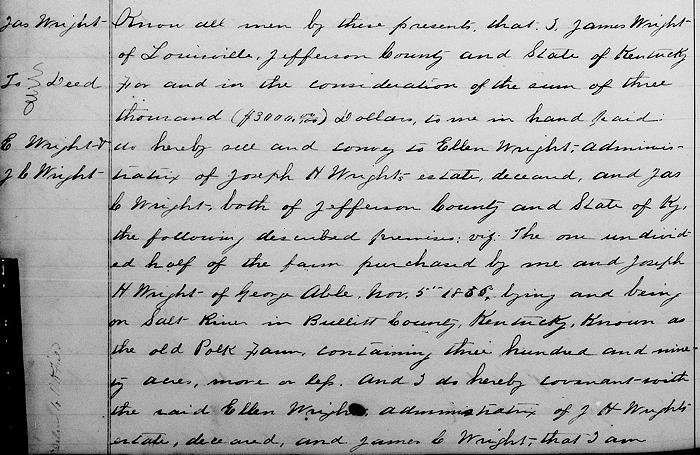 Jas Wright
To Deed
E Wright &
J C Wright
Know all men by these presents, that I, James Wright
of Louisville, Jefferson County and State of Kentucky
For and in the consideration of the sum of three
thousand ($3000.00/100) Dollars, to me in hand paid:
do hereby sell and convey to Ellen Wright, adminis-
tratrix of Joseph H Wright's estate, deceased, and Jas
C Wright, both of Jefferson County and State of Ky,
the following described premises: viz: The one undivid-
ed half of the farm purchased by me and Joseph
H Wright of George Able, Nov. 5th 1855, lying and being
on Salt River in Bullitt County, Kentucky, Known as
the old Polk Farm, containing three hundred and nine-
ty acres, more or less. And I do hereby covenant with
the said Ellen Wright, administratrix of J H Wright's
estate, deceased, and James C Wright, that I am